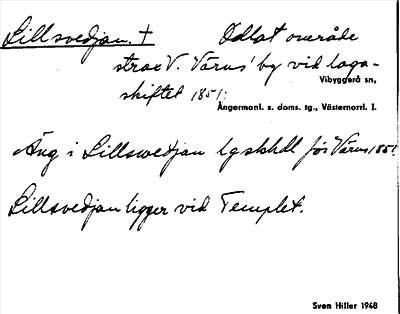 Lillsvedjan. † Odlat område
strax V. Vårns' by vid laga-
Vibyggerå sn,
skiftet 1851;
Ångermanl. s. doms. tg., Västernorrl. l.
Äng i Lillswedjan lgskhdl för Vårns 1851.
Lillsvedjan ligger vid Templet.
Sven Hiller 1948